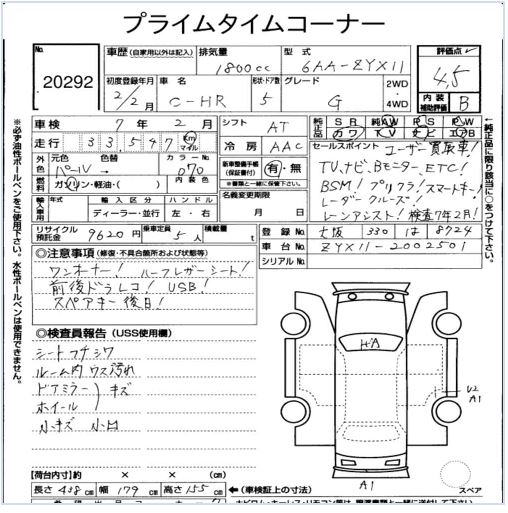 プライムタイムコーナー
No. 20292
車歴 (自家用以外は記入) 排気量 1800cc 型式 6AA-ZYX11
評価点 4.5
初度登録年月 2/2月 車名 C-HR 形状・ドア数 5 グレード G 2WD 4WD
内装補助評価 B
車検 7年 2月 シフト AT 純正品 SR AW PS PW カワ TV ナビ エアB
走行 33,547 km マイル 冷房 AAC セールスポイント ユーザー買取車!
外色 元色 パール 色替 カラーNo 070 新車整備手帳(保証書付) 有・無 TV,ナビ,Bモニター,ETC!
燃料 ガソリン・軽油・( ) 内装色 ※書類と一緒に保管下さい。 BSM! プリクラ! スマートキー!
輸入車用 年式 輸入区分 ディーラー・並行 ハンドル 左・右 名義変更期限 月 日 レーダークルーズ!
レーンアシスト! 検査7年2月!
リサイクル預託金 9620円 乗車定員 5人 積載量 t 登録No 大阪 330 は 8924
車台No ZYX11-2002501
シリアルNo
◎注意事項 (修復・不具合箇所および状態等)
ワンオーナー! ハーフレザーシート!
前後ドラレコ! USB!
スペアキー後日!
◎検査員報告 (USS使用欄)
シートフチシワ
ルーム内ウス汚れ
ドアミラー
ホイール
キズ
小キズ 小凹
H-A
U2
A1
A1
スペア
【荷台内寸】約 × × cm
長さ 438 cm 幅 179 cm 高さ 155 cm ←(車検証上の寸法)
※必ず油性ボールペンをご使用下さい。水性ボールペンは使用できません。
←純正品に限り該当に○をつけて下さい。